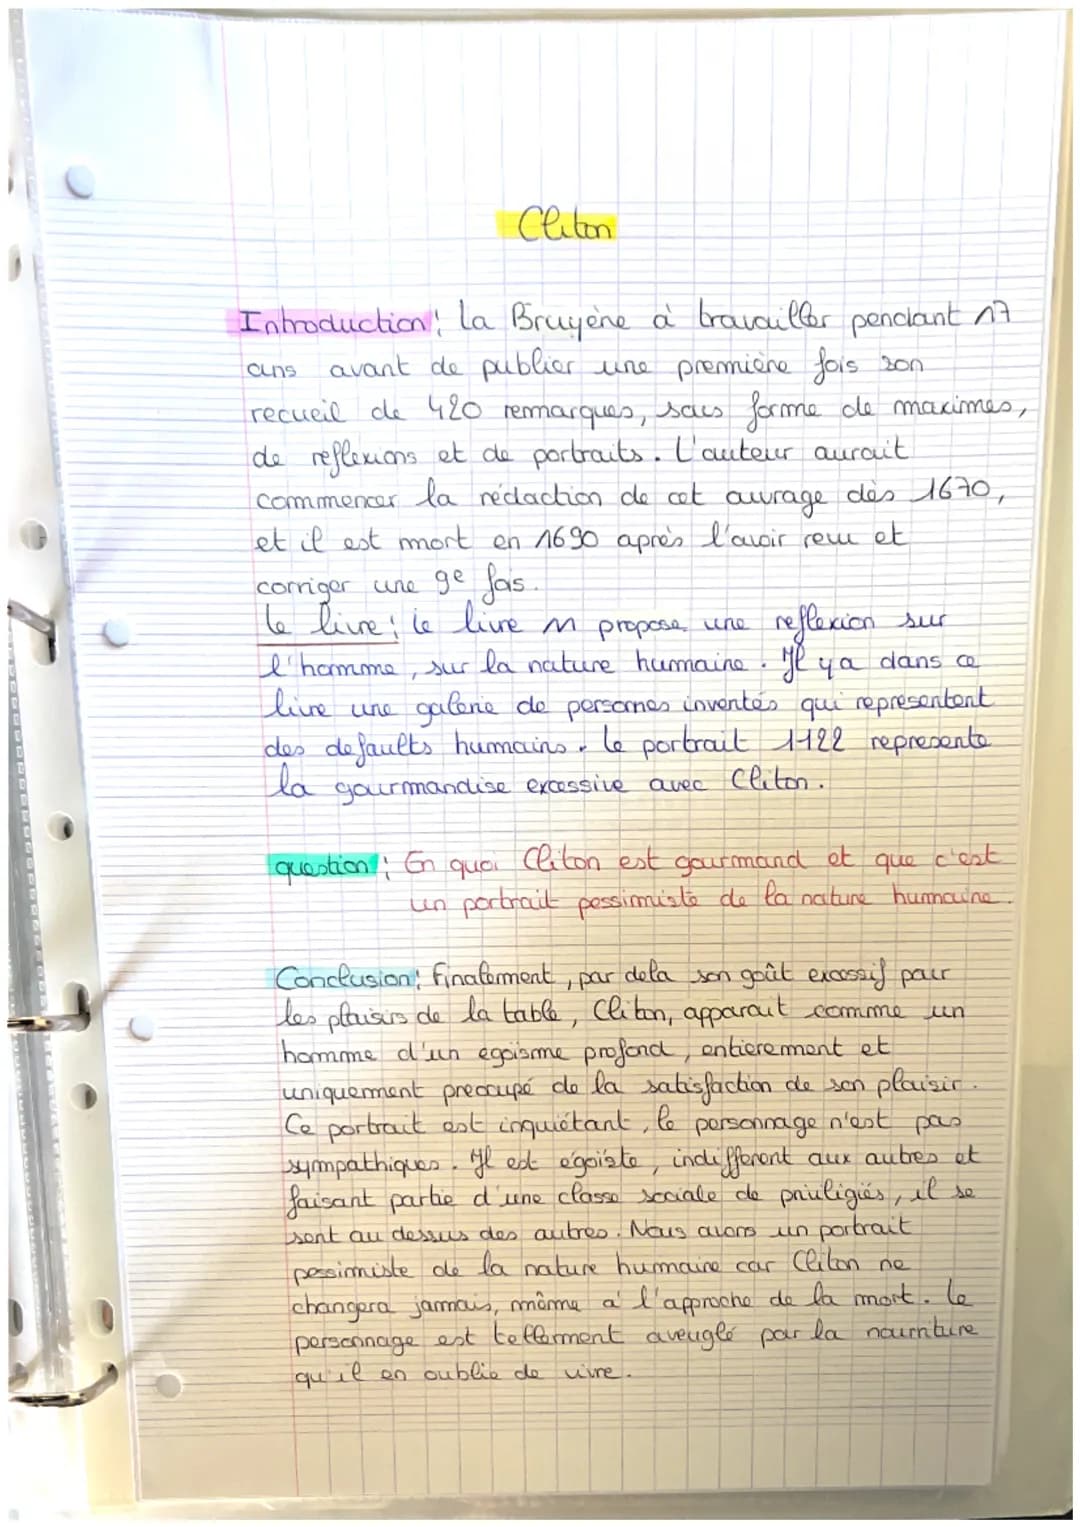 Cliton
Introduction : La Bruyère à travailler pendant 17
ans avant de publier une première fois son
recueil de 420 remarques, sous forme de maximes,
de reflexions et de portraits. L'auteur aurait
commencer la rédaction de cet ouvrage dès 1670,
et il est mort en 1690 après l'avoir revu et
corriger une 9e fois.
Le livre : le livre propose une reflexion sur
l'homme, sur la nature humaine. Il y a dans ce
livre une galerie de personnes inventés qui representent
des defaults humains. Le portrait 1122 represente
la gourmandise excessive avec Cliton.
question : En quoi Cliton est gourmand et que c'est
un portrait pessimiste de la nature humaine.
Conclusion : Finalement, par dela son goût excessif pour
les plaisirs de la table, Cliton, apparait comme un
homme d'un egoisme profond, entierement et
uniquement preocupé de la satisfaction de son plaisir.
Ce portrait est inquiétant, le personnage n'est pas
sympathiques. Il est égoiste, indifferent aux autres et
faisant partie d'une classe sociale de priviligiés, il se
sent au dessus des autres. Nous avons un portrait
pessimiste de la nature humaine car Cliton ne
changera jamais, même a l'approche de la mort. Le
personnage est tellement aveuglé par la nourriture
qu'il en oublie de vivre.